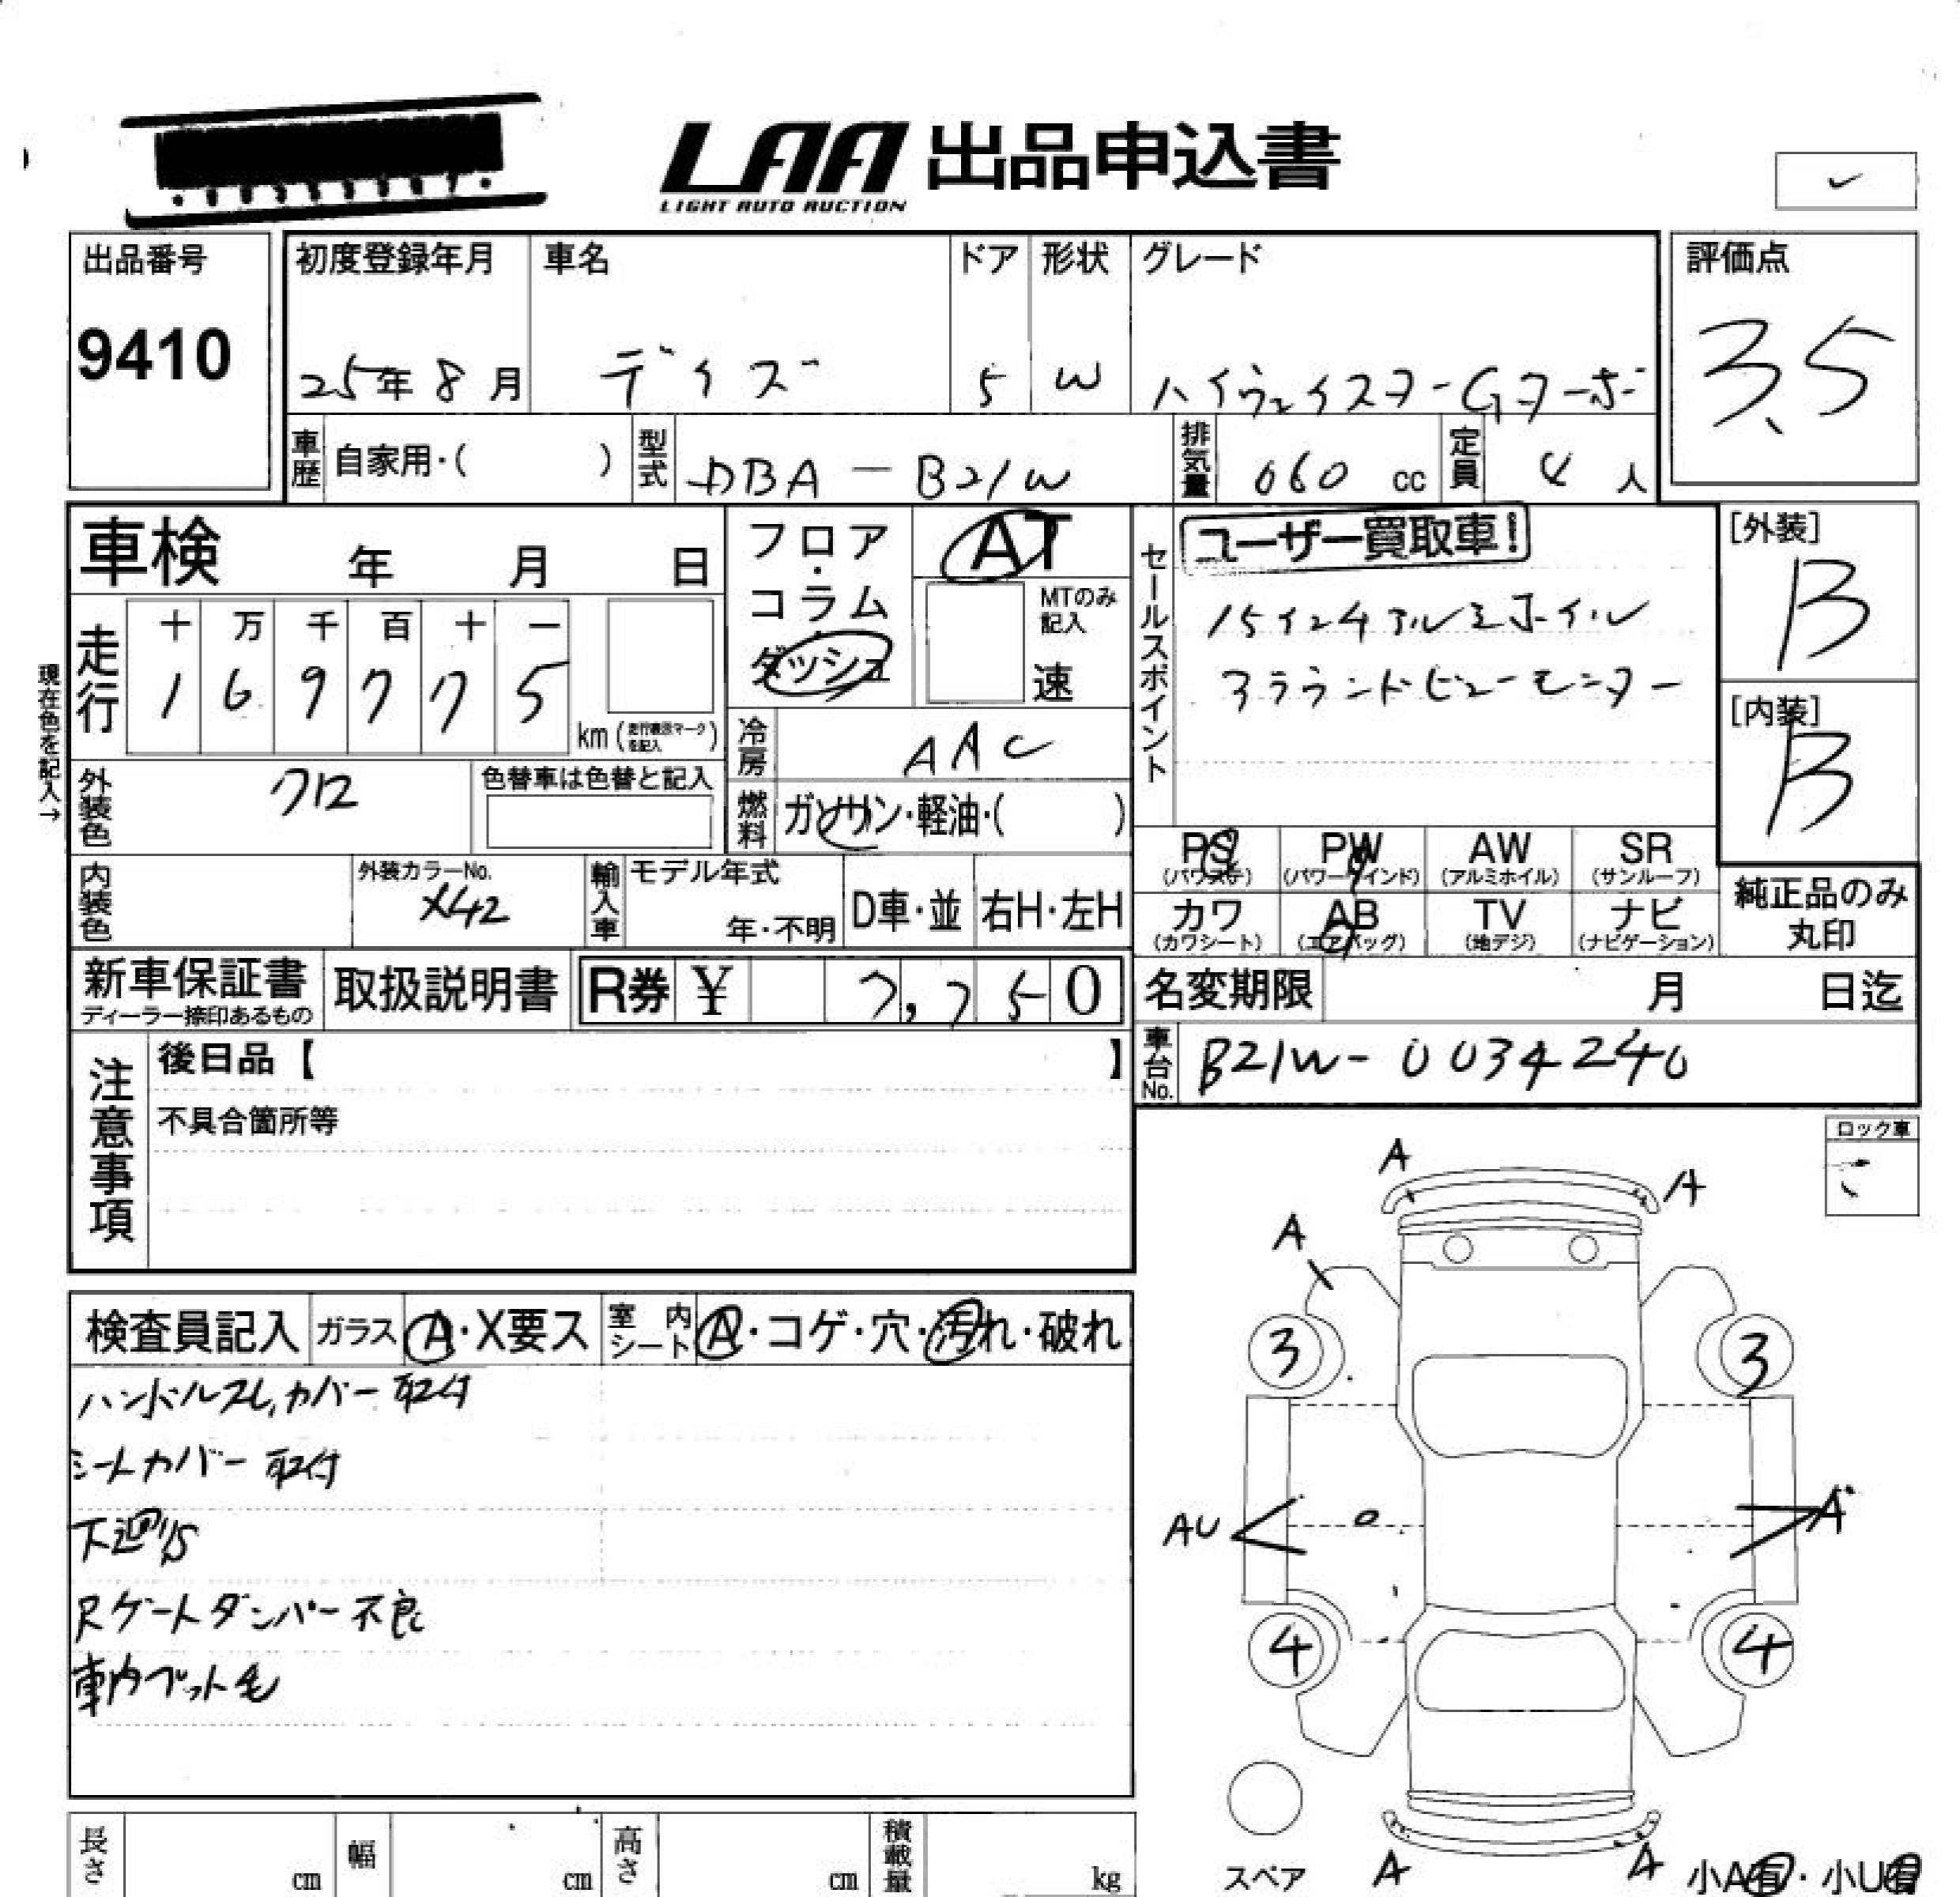 LAA 出品申込書
LIGHT AUTO AUCTION
出品番号
9410
初度登録年月
25年8月
車名
デイズ
ドア
5
形状
W
グレード
ハイウェイスターGターボ
評価点
3.5
車歴 自家用・( )
型式 DBA-B21W
排気量 660 cc
定員 4 人
車検 年 月 日
フロア・コラム
ダッシュ
AT
MTのみ記入
速
セールスポイント
ユーザー買取車!
15インチアルミホイル
アラウンドビューモニター
[外装]
B
[内装]
B
現在色を記入→
走行
十 万 千 百 十 一
1 6 9 7 7 5
km(走行表示マークを記入)
冷房 AAC
外装色 クロ
色替車は色替と記入
燃料 ガソリン・軽油・( )
PS (パワステ)
PW (パワーウインド)
AW (アルミホイル)
SR (サンルーフ)
カワ (カワシート)
AB (エアバッグ)
TV (地デジ)
ナビ (ナビゲーション)
純正品のみ
丸印
内装色
外装カラーNo.
X42
輸入車
モデル年式
年・不明
D車・並
右H・左H
新車保証書
ディーラー捺印あるもの
取扱説明書
R券 ¥ 7,750
名変期限 月 日迄
車台No. B21W-0034240
注意事項
後日品【 】
不具合箇所等
ロック車
検査員記入
ガラス A・X要ス
室内シート A・コゲ・穴・汚れ・破れ
ハンドルスレ,カバー取付
シートカバー取付
下廻りS
Rゲートダンパー不良
車内ペット毛
A
A
A
3
3
AU
A
4
4
スペア
A
A
小A有・小U有
長さ cm
幅 cm
高さ cm
積載量 kg